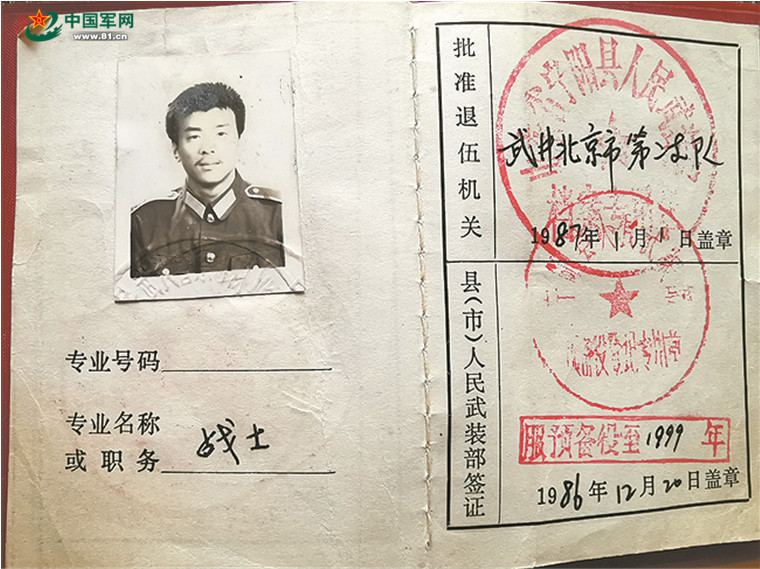 中国军网
www.81.cn
专业号码
专业名称
或职务
战士
批准退伍机关
武井北京市第二支队
1987年1月1日盖章
县(市)人民武装部签证
服预备役至1999年
1986年12月20日盖章